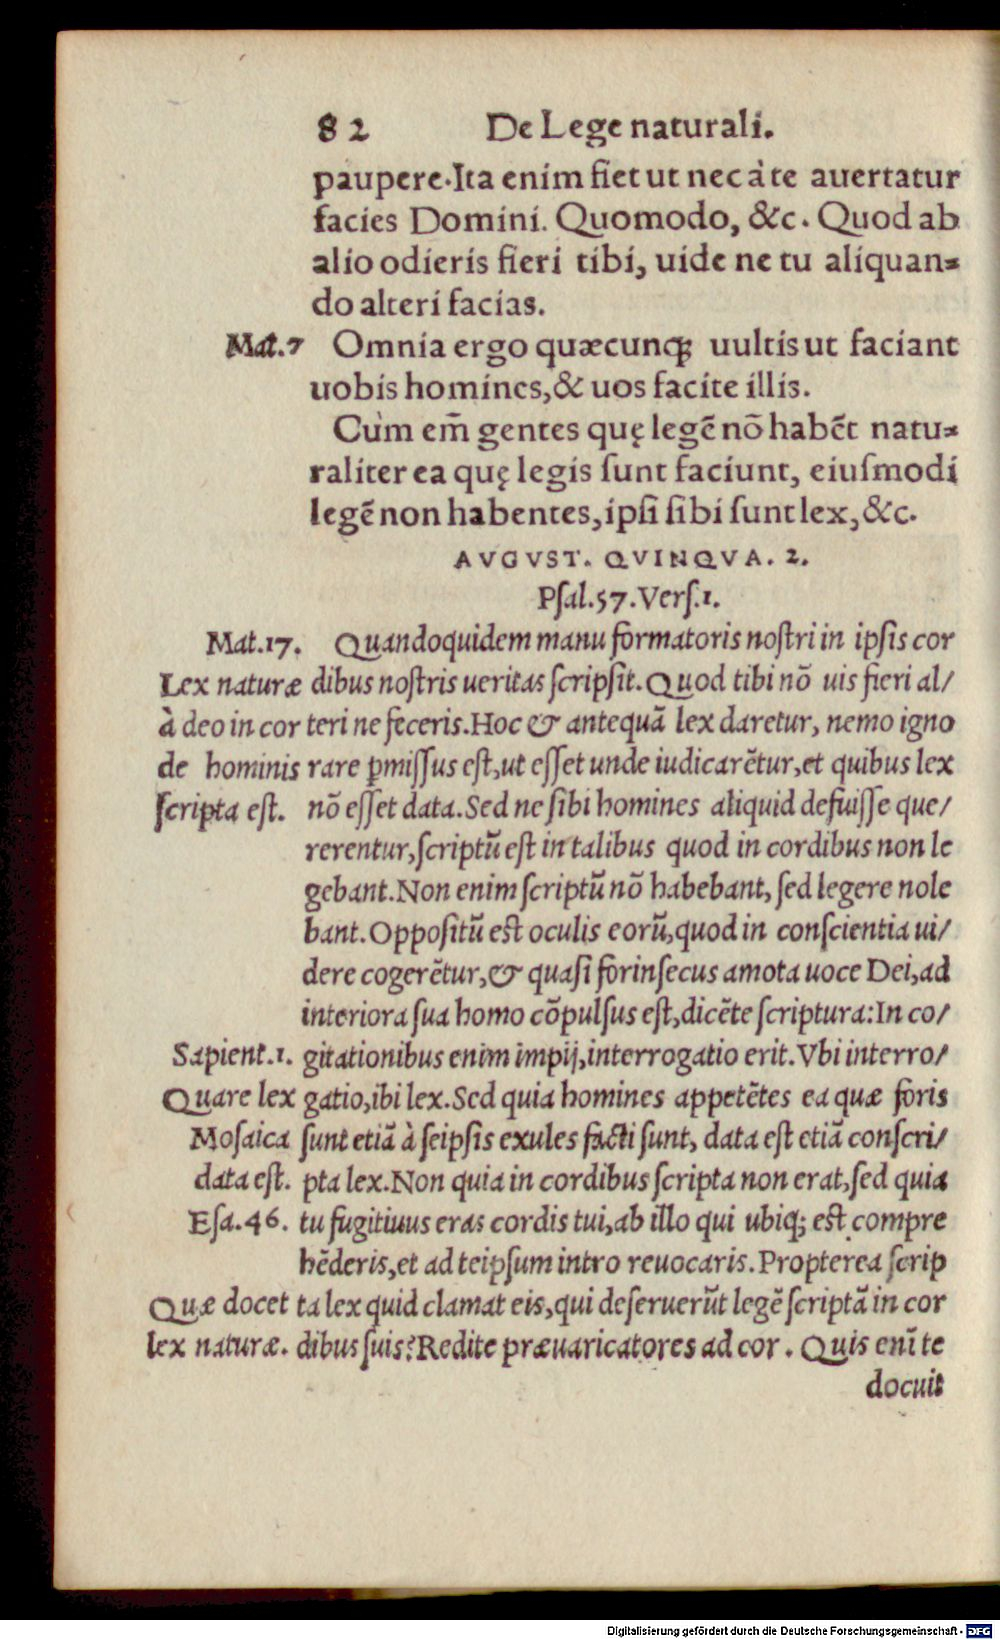 82 De Lege naturali.
paupere. Ita enim fiet ut nec à te auertatur
facies Domini. Quomodo, &c. Quod ab
alio odieris fieri tibi, uide ne tu aliquan⸗
do alteri facias.
Mat.7 Omnia ergo quæcunqꝫ uultis ut faciant
uobis homines, & uos facite illis.
Cùm em̃ gentes quę legẽ nõ habẽt natu⸗
raliter ea quę legis ſunt faciunt, eiuſmodi
legẽ non habentes, ipſi ſibi ſunt lex, &c.
AVGVST. QVINQVA. 2.
Pſal.57.Verſ.1.
Mat.17. Quandoquidem manu formatoris noſtri in ipſis cor
Lex naturæ dibus noſtris ueritas ſcripſit. Quod tibi nõ uis fieri al/
à deo in cor teri ne feceris. Hoc & antequã lex daretur, nemo igno
de hominis rare ꝑmiſſus eſt, ut eſſet unde iudicarẽtur, et quibus lex
ſcripta eſt. nõ eſſet data. Sed ne ſibi homines aliquid defuiſſe que/
rerentur, ſcriptũ eſt in talibus quod in cordibus non le
gebant. Non enim ſcriptũ nõ habebant, ſed legere nole
bant. Oppoſitũ eſt oculis eorũ, quod in conſcientia ui/
dere cogerẽtur, & quaſi forinſecus amota uoce Dei, ad
interiora ſua homo cõpulſus eſt, dicẽte ſcriptura: In co/
Sapient.1. gitationibus enim impij, interrogatio erit. Vbi interro/
Quare lex gatio, ibi lex. Sed quia homines appetẽtes ea quæ foris
Moſaica ſunt etiã à ſeipſis exules facti ſunt, data eſt etiã conſcri/
data eſt. pta lex. Non quia in cordibus ſcripta non erat, ſed quia
Eſa.46. tu fugitiuus eras cordis tui, ab illo qui ubiqꝫ eſt compre
hẽderis, et ad teipſum intro reuocaris. Propterea ſcrip
Quæ docet ta lex quid clamat eis, qui deſeruerũt legẽ ſcriptã in cor
lex naturæ. dibus ſuis? Redite præuaricatores ad cor. Quis enĩ te
docuit
Digitalisierung gefördert durch die Deutsche Forschungsgemeinschaft - DFG